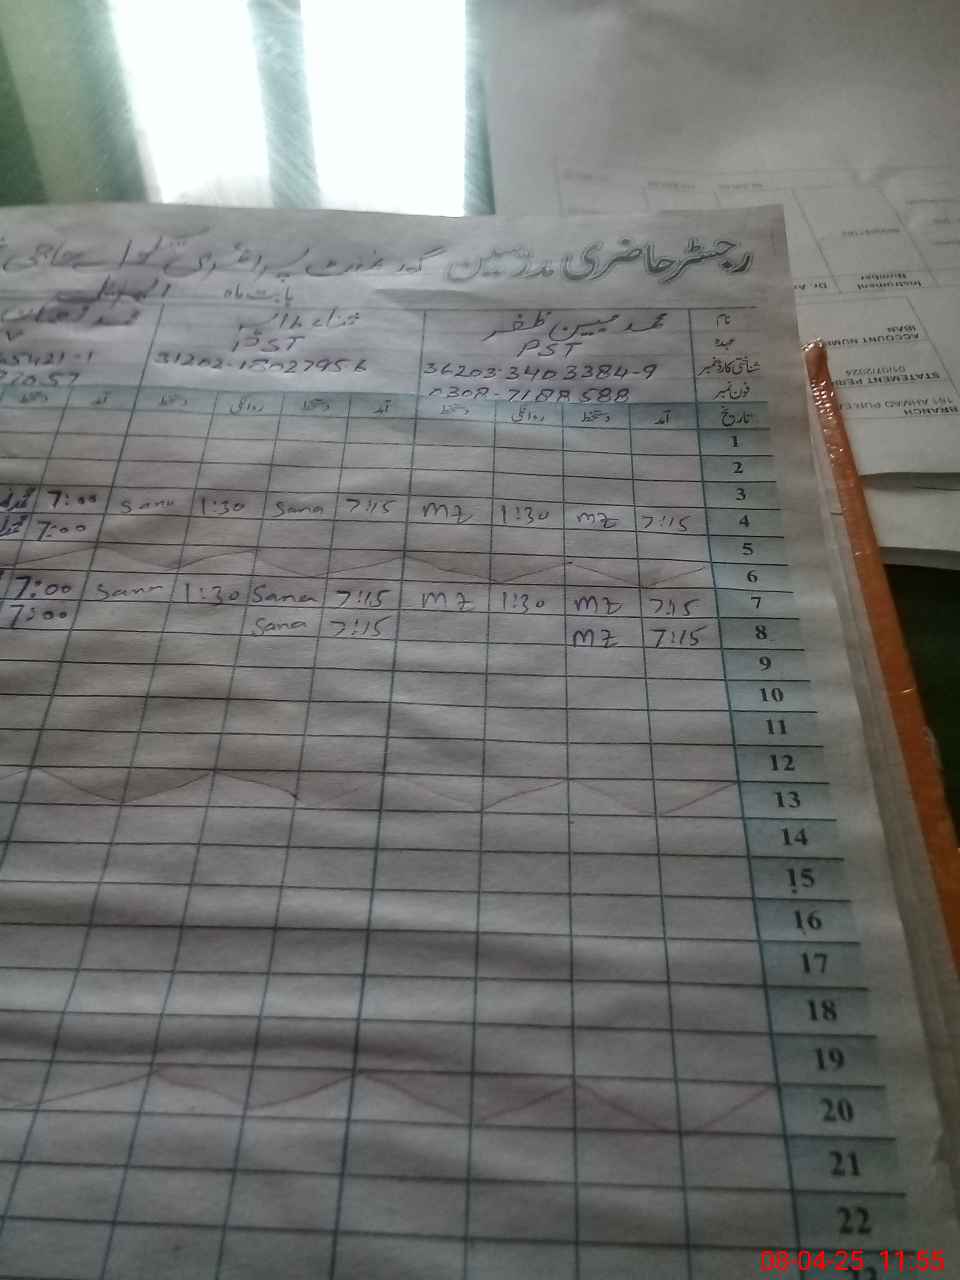 رجسٹر حاضری مدرسین گورنمنٹ پرائمری
بابت ماہ
نام محمد مبین ظفر
عہدہ PST PST
شناختی کارڈ نمبر 36203-3403384-9 31202-18027956
فون نمبر 0308-7188588
تاریخ آمد دستخط روانگی دستخط آمد دستخط روانگی دستخط آمد دستخط
1
2
3
4 7:15 MZ 1:30 MZ 7:15 Sana 1:30 Sana 7:00
5 7:00
6
7 7:15 MZ 1:30 MZ 7:15 Sana 1:30 Sana 7:00
8 7:15 MZ 7:15 Sana 7:00
9
10
11
12
13
14
15
16
17
18
19
20
21
22
Instrument Number
ACCOUNT NUMBER
IBAN
STATEMENT PERI
01/07/2024
BRANCH
08-04-25 11:55